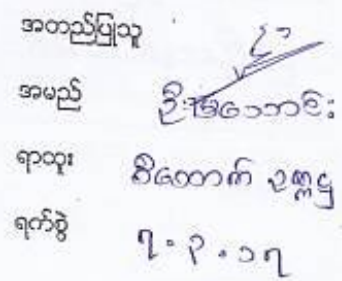 အတည်ပြုသူ
အမည် ဦးမြဘောင်း
ရာထူး စိတောက် ဥက္ကဋ္ဌ
ရက်စွဲ ၇.၃.၁၇